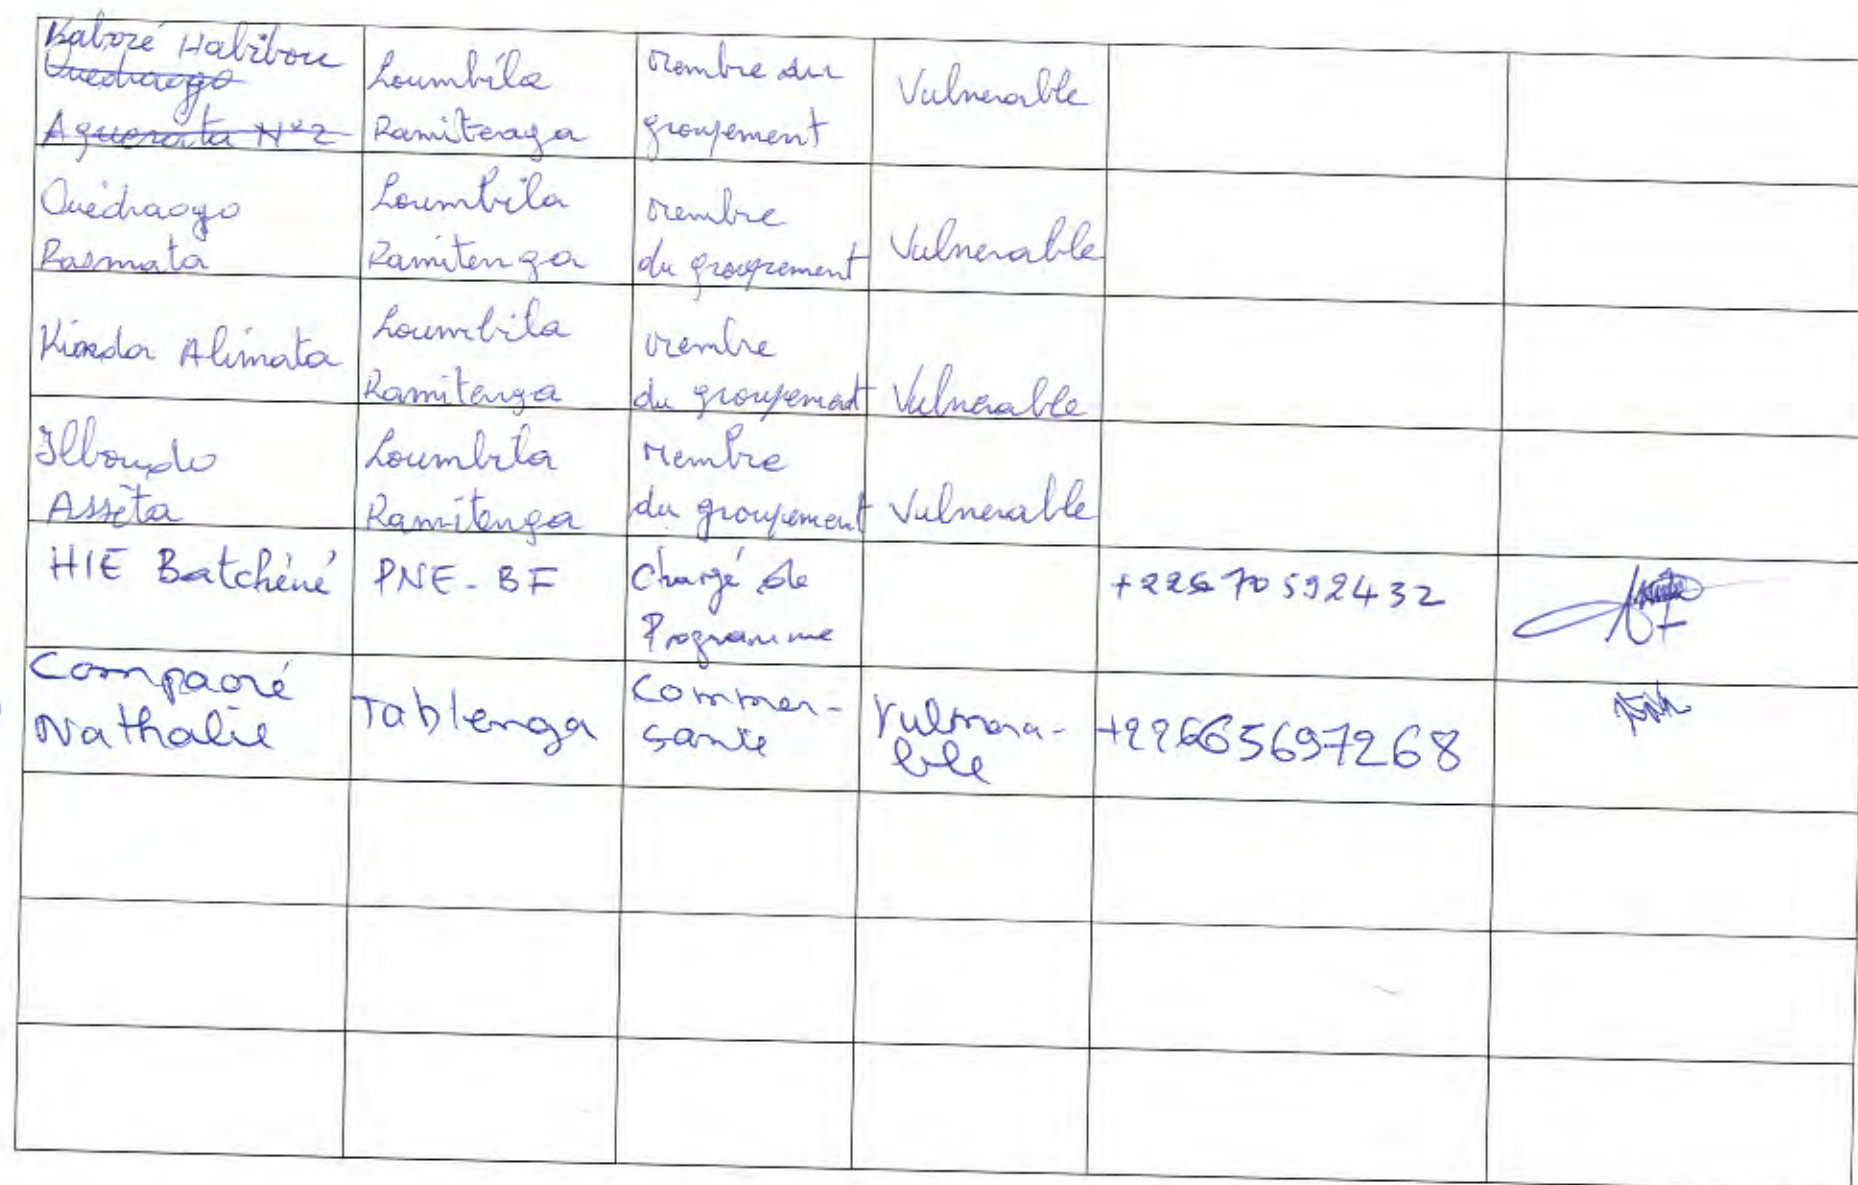 Kaboré Habibou
Ouedraogo
Aguerata N°2
Loumbila
Ramitenga
Membre du
groupement
Vulnerable
Ouédraogo
Rasmata
Loumbila
Ramitenga
Membre
du groupement
Vulnerable
Kinda Alimata
Loumbila
Ramitenga
Membre
du groupement
Vulnerable
Ilboudo
Asséta
Loumbila
Ramitenga
Membre
du groupement
Vulnerable
HIE Batchéné
PNE-BF
Chargé de
Programme
+226 70 592432
Compaoré
Nathalie
Tablenga
Commer-
sante
Vulnera-
ble
+22665697268